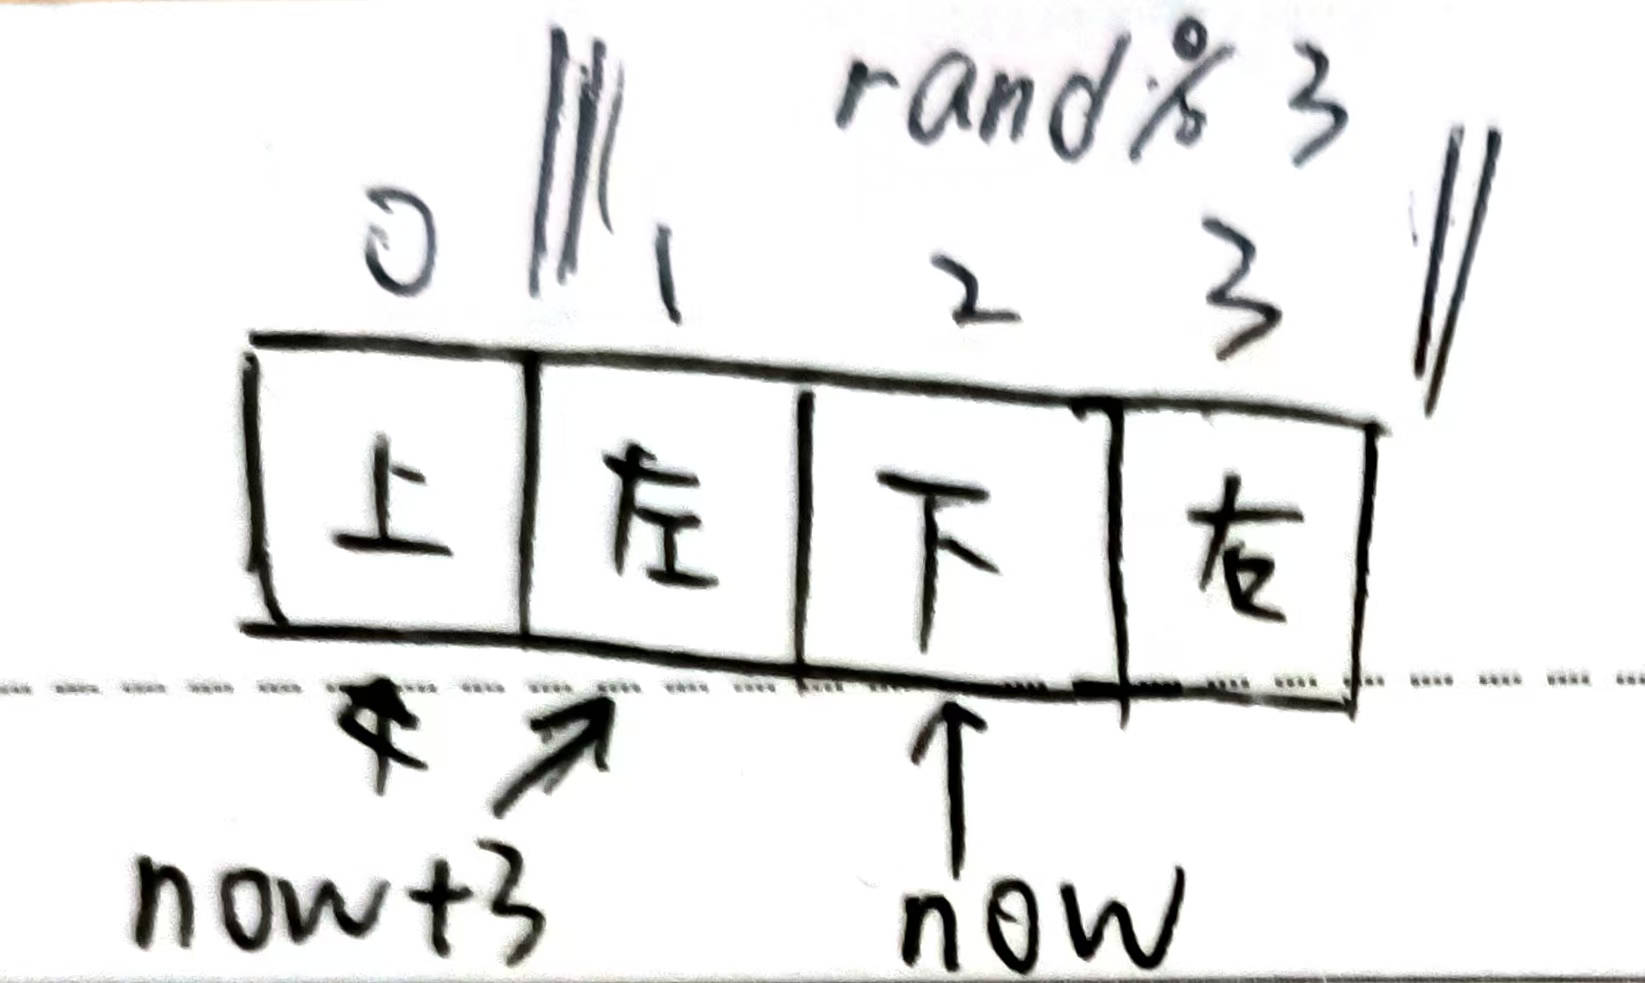 rand%3
0 1 2 3
上 左 下 右
now+3 now